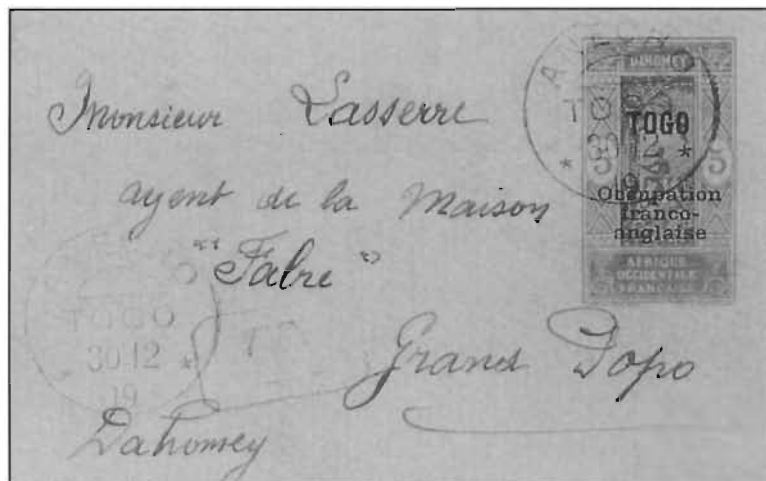 Monsieur Lasserre
agent de la Maison
"Fabre"
Grand Popo
Dahomey
DAHOMEY
TOGO
Occupation
franco-
anglaise
AFRIQUE
OCCIDENTALE
FRANÇAISE
5 5
ANECHO
TOGO
30 12
19